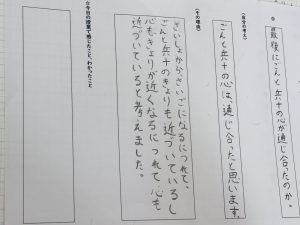 ◎最後にごんと兵十の心が通じ合ったのか。
〈自分の考え〉
ごんと兵十の心は、通じ合ったと思います。
〈その理由〉
さいしょからさいごになるにつれて、
ごんと兵十のきょりも近づいているし
心もきょりが近くなるにつれて、心も
近づいていると考えました。
☆今日の授業で感じたこと、わかったこと